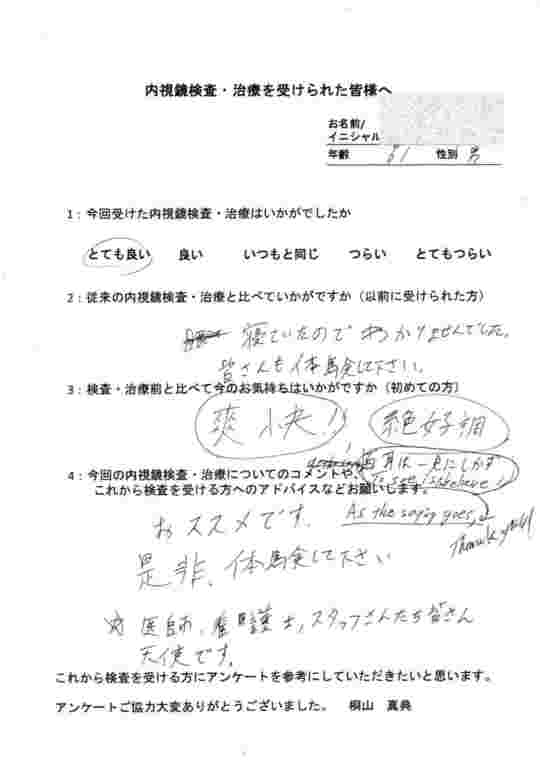 内視鏡検査・治療を受けられた皆様へ
お名前/
イニシャル
年齢 61 性別 男
1：今回受けた内視鏡検査・治療はいかがでしたか
とても良い 良い いつもと同じ つらい とてもつらい
2：従来の内視鏡検査・治療と比べていかがですか（以前に受けられた方）
寝ていたのでわかりませんでした。
皆さんも体験して下さい。
3：検査・治療前と比べて今のお気持ちはいかがですか（初めての方）
爽快!! 絶好調
百耳は一見にしかず
4：今回の内視鏡検査・治療についてのコメントや、
To see is believe!
これから検査を受ける方へのアドバイスなどお願いします。
As the saying goes,
おススメです。
Thank you!
是非、体験して下さい
☆ 医師、看護士、スタッフさんたち皆さん
天使です。
これから検査を受ける方にアンケートを参考にしていただきたいと思います。
アンケートご協力大変ありがとうございました。 桐山 真典